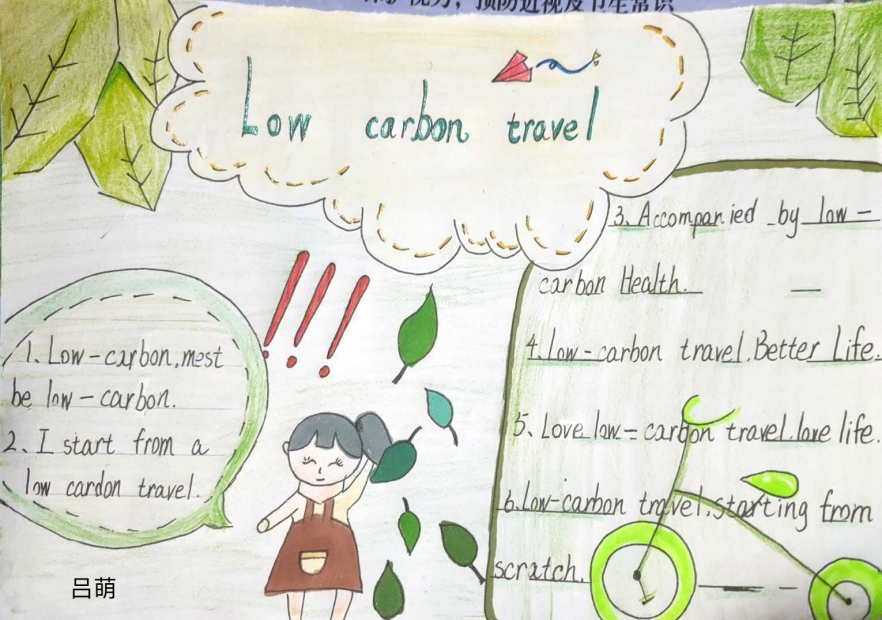 视力，预防近视及卫生常识
Low carbon travel
1、Low-carbon,mest
be low-carbon.
2、I start from a
low cardon travel.
3、Accompanied by low-
carbon Health.
4.low-carbon travel.Better Life.
5、Love low-carbon travel.love life.
6.Low-carbon travel.starting from
scratch.
吕萌